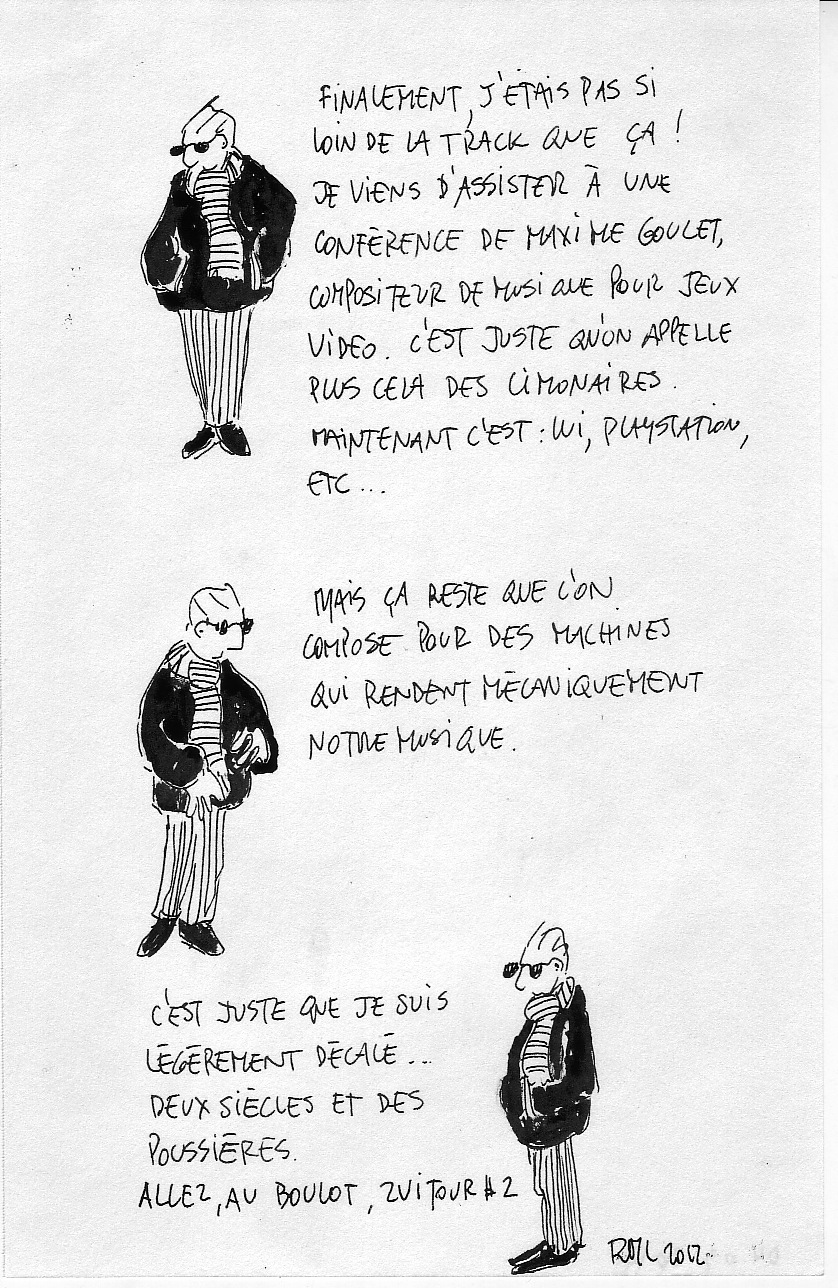 FINALEMENT, J'ÉTAIS PAS SI
LOIN DE LA TRACK QUE ÇA !
JE VIENS D'ASSISTER À UNE
CONFÉRENCE DE MAXIME GOULET,
COMPOSITEUR DE MUSIQUE POUR JEUX
VIDEO. C'EST JUSTE QU'ON APPELLE
PLUS CELA DES LIMONAIRES.
MAINTENANT C'EST : WI, PLAYSTATION,
ETC...
MAIS ÇA RESTE QUE L'ON
COMPOSE POUR DES MACHINES
QUI RENDENT MÉCANIQUEMENT
NOTRE MUSIQUE.
C'EST JUSTE QUE JE SUIS
LÉGÈREMENT DÉCALÉ...
DEUX SIÈCLES ET DES
POUSSIÈRES.
ALLEZ, AU BOULOT, ZUITOUR #2
RML 2012